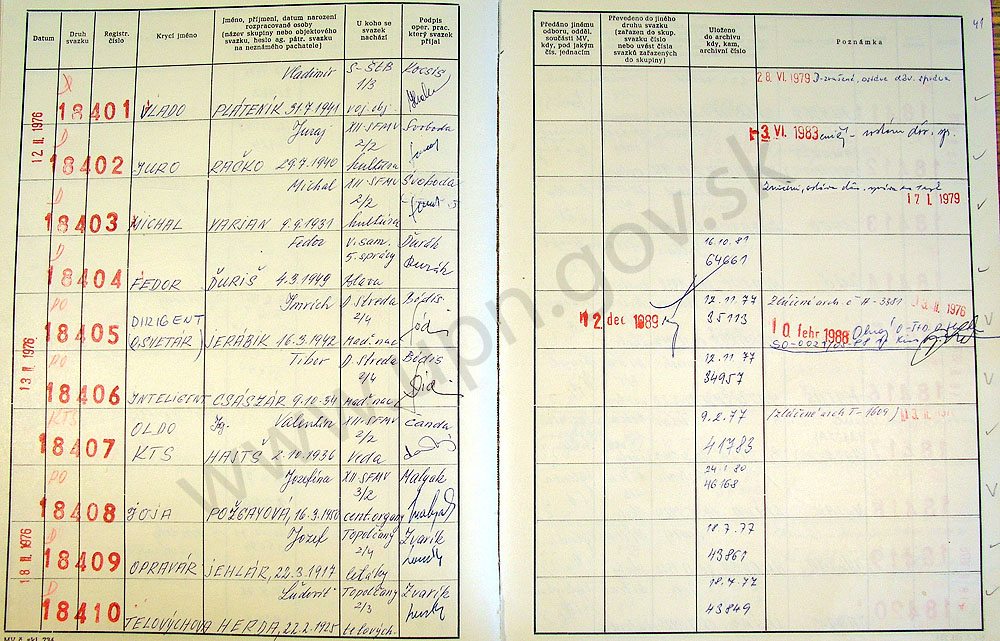 Datum
Druh svazku
Registr. číslo
Krycí jméno
Jméno, příjmení, datum narození rozpracované osoby (název skupiny nebo objektového svazku, heslo ag. pátr. svazku na neznámého pachatele)
U koho se svazek nachází
Podpis oper. prac. který svazek přijal
Předáno jinému odboru, odděl. součásti MV, kdy, pod jakým čís. jednacím
Převedeno do jiného druhu svazku (zařazen do skup. svazku číslo nebo uvést číslo svazků zařazených do skupiny)
Uloženo do archivu kdy, kam, archivní číslo
Poznámka
41
12 II. 1976
18401 VLADO Vladimír PLÁTENÍK 31.7.1941 S-ŠtB 1/3 voj. obj. Kocsis
28. VI. 1979
18402 JURO Juraj RAČKO 29.7.1940 XII-SFMV 2/2 kultúra Svoboda
-3 VI. 1983
18403 MICHAL Michal VARJAN 9.9.1931 XII-SFMV 2/2 kultúra Svoboda
17 I. 1979
18404 FEDOR Fedor ĎURIŠ 4.3.1949 V. sam. 5. správy Ďurák
16.10.81
64661
13 II. 1976
PO
18405 DIRIGENT (OSVETÁR) Imrich JERÁBIK 16.3.1942 D. Streda 2/4 Maď. nac. Bödis
12 dec 1989
12.11.77
35113
10 febr 1988
PO
18406 INTELIGENT Tibor CSÁSZÁR 9.10.34 D. Streda 2/4 Maď. nac. Bödis
12.11.77
34957
KTS
18407 OLDO KTS Ig. Valentin HAJTŠ 2.10.1936 XII-SFMV 2/2 Veda Čanda
9.2.77
41783
PO
18408 JOJA Jozefína POŽGAYOVÁ, 16.3.1950 XII SFMV 3/2 cent. organy Malyak
24.1.80
46168
18 II. 1976
18409 OPRAVÁR Jozef JEHLÁR, 22.3.1917 Topoľčany 2/4 Zvarík
18.7.77
43861
18410 TELOVÝCHOVA Ľudovít HERDA, 22.2.1925 Topoľčany 2/3 telových. Zvarík
18.7.77
43849
www.upn.gov.sk